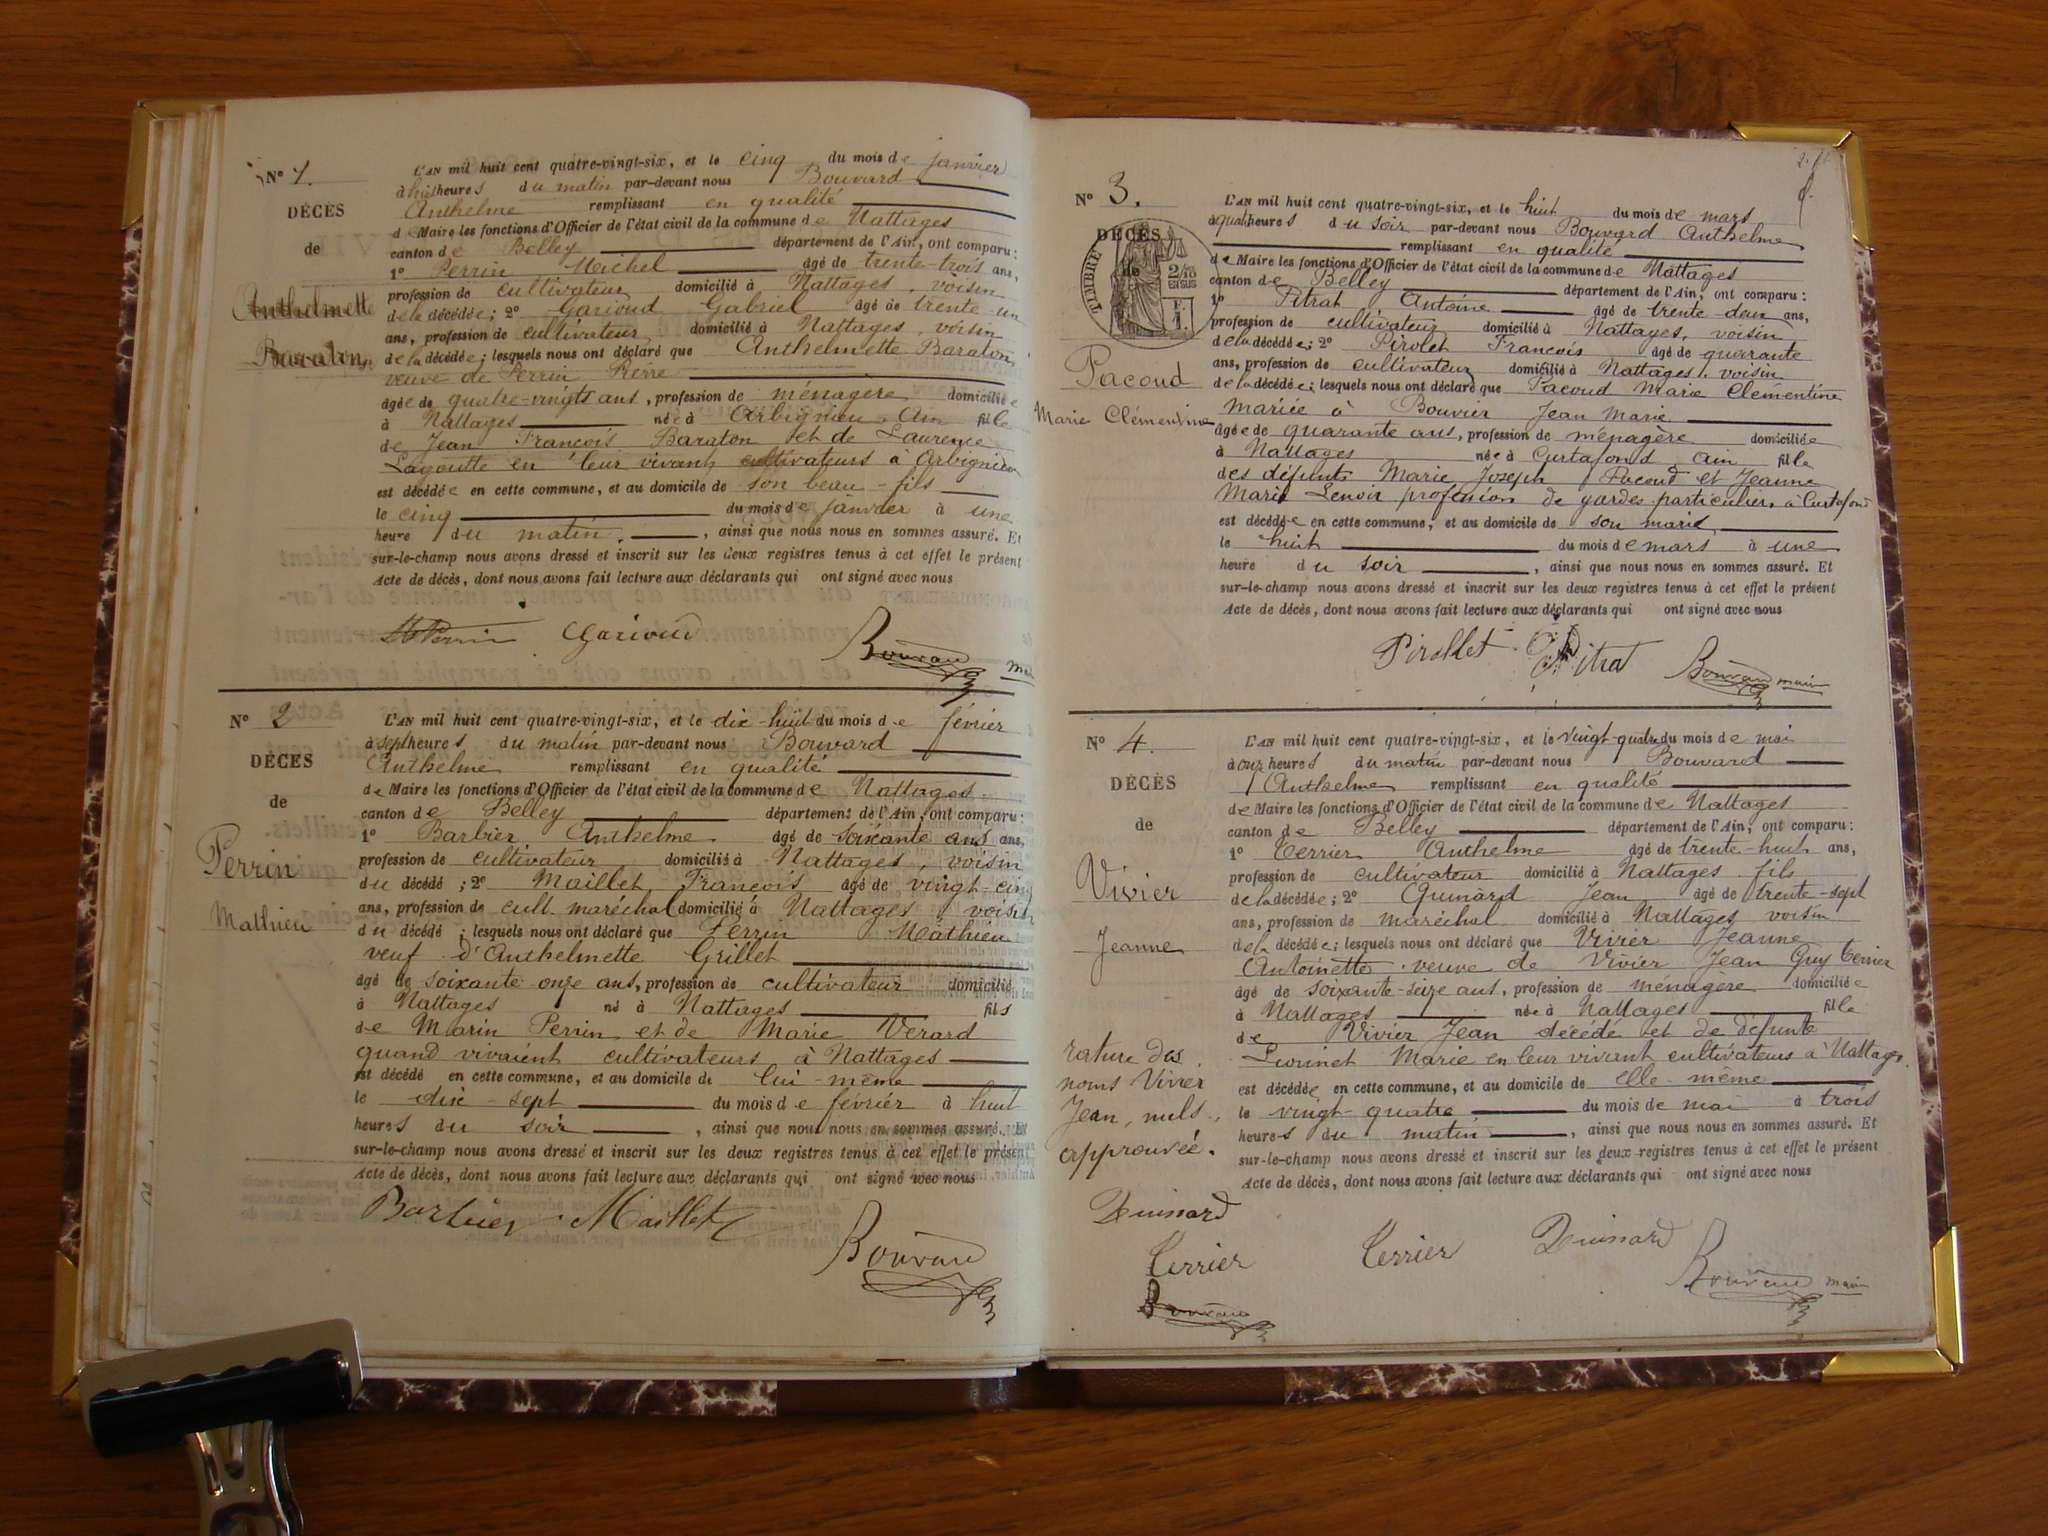 N° 1.
DÉCÈS
de
Anthelmette
Baraton
L'AN mil huit cent quatre-vingt-six, et le cinq du mois de janvier
à huit heures du matin par-devant nous Bouvard
Anthelme remplissant en qualité
de Maire les fonctions d'Officier de l'état civil de la commune de Nattages
canton de Belley département de l'Ain, ont comparu :
1° Perrin Michel âgé de trente-trois ans,
profession de cultivateur domicilié à Nattages, voisin
de la décédée; 2° Garioud Gabriel âgé de trente-un
ans, profession de cultivateur domicilié à Nattages, voisin
de la décédée; lesquels nous ont déclaré que Anthelmette Baraton
veuve de Perrin Pierre
âgée de quatre-vingts ans, profession de ménagère domiciliée
à Nattages née à Arbignieu, Ain fille
de Jean François Baraton et de Laurence
Lagoutte en leur vivant cultivateurs à Arbignieu
est décédée en cette commune, et au domicile de son beau-fils
le cinq du mois de janvier à une
heure du matin, ainsi que nous nous en sommes assuré. Et
sur-le-champ nous avons dressé et inscrit sur les deux registres tenus à cet effet le présent
Acte de décès, dont nous avons fait lecture aux déclarants qui ont signé avec nous
Perrin Garioud Bouvard
N° 2
DÉCÈS
de
Perrin
Mathieu
L'AN mil huit cent quatre-vingt-six, et le dix-huit du mois de février
à sept heures du matin par-devant nous Bouvard
Anthelme remplissant en qualité
de Maire les fonctions d'Officier de l'état civil de la commune de Nattages
canton de Belley département de l'Ain, ont comparu :
1° Barbier Anthelme âgé de soixante ans ans,
profession de cultivateur domicilié à Nattages, voisin
du décédé ; 2° Maillet François âgé de vingt-cinq
ans, profession de cult. maréchal domicilié à Nattages, voisin
du décédé ; lesquels nous ont déclaré que Perrin Mathieu
veuf d'Anthelmette Grillet
âgé de soixante onze ans, profession de cultivateur domicilié
à Nattages né à Nattages fils
de Marin Perrin et de Marie Verard
quand vivaient cultivateurs à Nattages
est décédé en cette commune, et au domicile de lui-même
le dix-sept du mois de février à huit
heures du soir, ainsi que nous nous en sommes assuré. Et
sur-le-champ nous avons dressé et inscrit sur les deux registres tenus à cet effet le présent
Acte de décès, dont nous avons fait lecture aux déclarants qui ont signé avec nous
Barbier Maillet
Bouvard
N° 3.
DÉCÈS
de
TIMBRE
2/10
EN SUS
Pacoud
Marie Clémentine
L'AN mil huit cent quatre-vingt-six, et le huit du mois de mars
à quatre heures du soir par-devant nous Bouvard Anthelme
remplissant en qualité
de Maire les fonctions d'Officier de l'état civil de la commune de Nattages
canton de Belley département de l'Ain, ont comparu :
1° Pitrat Antoine âgé de trente deux ans,
profession de cultivateur domicilié à Nattages, voisin
de la décédée; 2° Pirolet François âgé de quarante
ans, profession de cultivateur domicilié à Nattages, voisin
de la décédée; lesquels nous ont déclaré que Pacoud Marie Clémentine
mariée à Bouvier Jean Marie
âgée de quarante ans, profession de ménagère domiciliée
à Nattages née à Curtafond Ain fille
des défunts Marie Joseph Pacoud et Jeanne
Marie Lenoir profession de gardes particuliers à Curtafond
est décédée en cette commune, et au domicile de son marie
le huit du mois de mars à une
heure du soir, ainsi que nous nous en sommes assuré. Et
sur-le-champ nous avons dressé et inscrit sur les deux registres tenus à cet effet le présent
Acte de décès, dont nous avons fait lecture aux déclarants qui ont signé avec nous
Pirollet Pitrat Bouvard maire
N° 4.
DÉCÈS
de
Vivier
Jeanne
L'AN mil huit cent quatre-vingt-six, et le vingt-quatre du mois de mai
à onze heures du matin par-devant nous Bouvard
Anthelme remplissant en qualité
de Maire les fonctions d'Officier de l'état civil de la commune de Nattages
canton de Belley département de l'Ain, ont comparu :
1° Terrier Anthelme âgé de trente-huit ans,
profession de cultivateur domicilié à Nattages fils
de la décédée; 2° Guinard Jean âgé de trente-sept
ans, profession de maréchal domicilié à Nattages voisin
de la décédée; lesquels nous ont déclaré que Vivier Jeanne
Antoinette veuve de Vivier Jean Guy Terrier
âgé de soixante-seize ans, profession de ménagère domiciliée
à Nattages née à Nattages fille
de Vivier Jean décédé et de défunte
Marie en leur vivant cultivateurs à Nattages
est décédée en cette commune, et au domicile de elle-même
le vingt-quatre du mois de mai à trois
heures du matin, ainsi que nous nous en sommes assuré. Et
sur-le-champ nous avons dressé et inscrit sur les deux registres tenus à cet effet le présent
Acte de décès, dont nous avons fait lecture aux déclarants qui ont signé avec nous
rature des
noms Vivier
Jean, nuls,
approuvée.
Guinard
Terrier
Bouvard
Terrier Guinard Bouvard maire